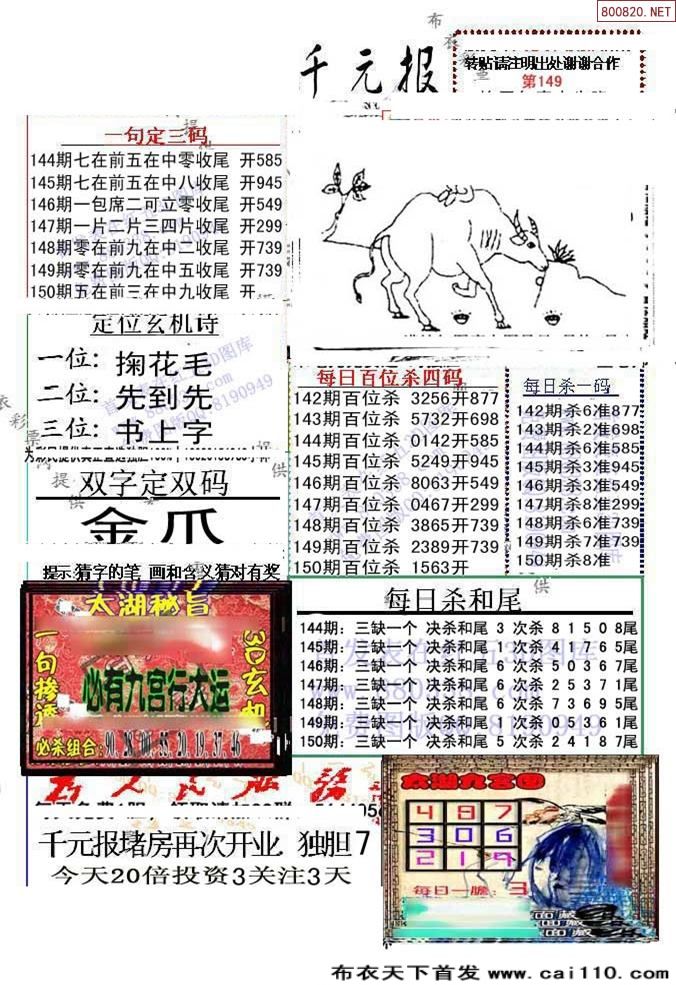 800820.NET
千元报
转贴请注明出处谢谢合作
第149
一句定三码
144期七在前五在中零收尾 开585
145期七在前五在中八收尾 开945
146期一包席二可立零收尾 开549
147期一片二片三四片收尾 开299
148期零在前九在中二收尾 开739
149期零在前九在中五收尾 开739
150期五在前三在中九收尾 开
定位玄机诗
一位: 掬花毛
二位: 先到先
三位: 书上字
双字定双码
金爪
提示:猜字的笔 画和含义猜对有奖
每日百位杀四码
142期百位杀 3256开877
143期百位杀 5732开698
144期百位杀 0142开585
145期百位杀 5249开945
146期百位杀 8063开549
147期百位杀 0467开299
148期百位杀 3865开739
149期百位杀 2389开739
150期百位杀 1563开
每日杀一码
142期杀6准877
143期杀2准698
144期杀4准585
145期杀3准945
146期杀3准549
147期杀8准299
148期杀6准739
149期杀7准739
150期杀8准
每日杀和尾
144期: 三缺一个 决杀和尾 3 次杀 8 1 5 0 8尾
145期: 三缺一个 决杀和尾 4 次杀 4 1 7 6 5尾
146期: 三缺一个 决杀和尾 6 次杀 5 0 3 6 7尾
147期: 三缺一个 决杀和尾 6 次杀 2 5 3 7 1尾
148期: 三缺一个 决杀和尾 6 次杀 7 3 6 9 5尾
149期: 三缺一个 决杀和尾 6 次杀 0 5 3 6 1尾
150期: 三缺一个 决杀和尾 5 次杀 2 4 1 8 7尾
太湖秘旨
一句掺透
3D玄机
必有九宫行大运
必杀组合: 90. 28. 00. 55. 20. 19. 37. 46
千元报堵房再次开业 独胆7
今天20倍投资3关注3天
太湖九宫图
4 8 7
3 0 6
2 1 9
每日一胆: 3
布衣天下首发 www.cai110.com